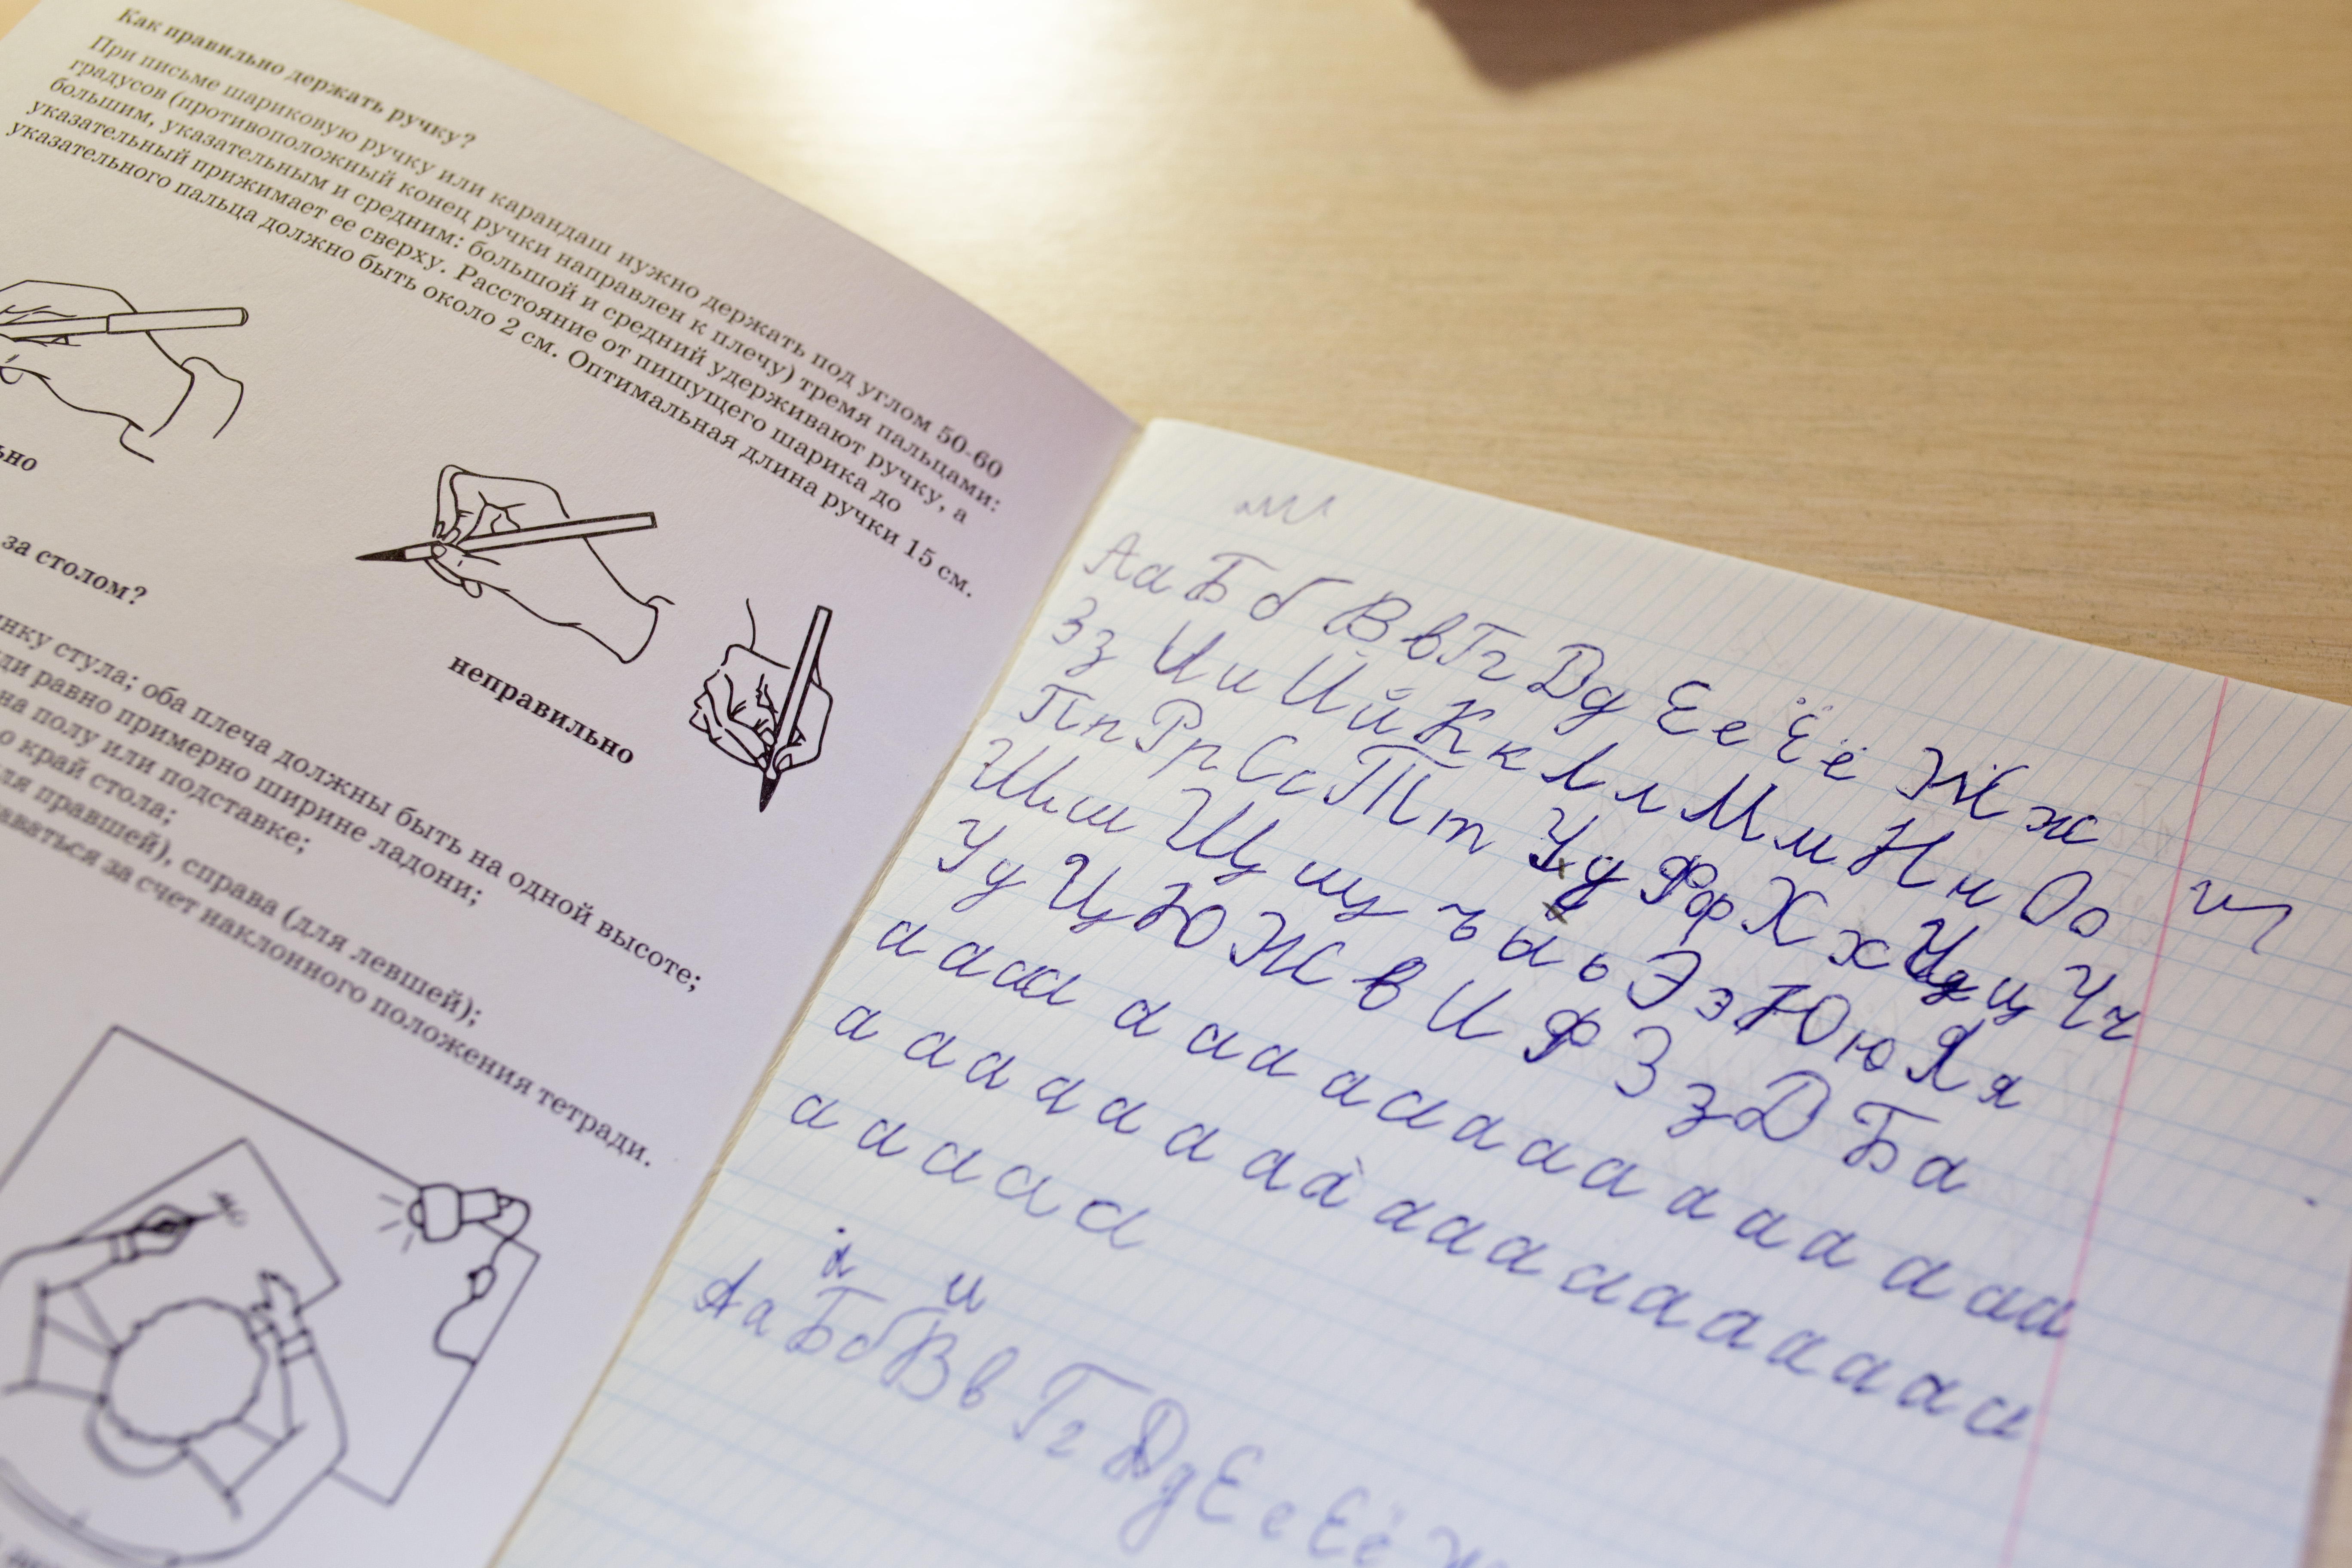 Как правильно держать ручку?
При письме шариковую ручку или карандаш нужно держать под углом 50-60
градусов (противоположный конец ручки направлен к плечу) тремя пальцами:
большим, указательным и средним: большой и средний удерживают ручку, а
указательный прижимает ее сверху. Расстояние от пишущего шарика до
указательного пальца должно быть около 2 см. Оптимальная длина ручки 15 см.
неправильно
за столом?
стула; оба плеча должны быть на одной высоте;
равно примерно ширине ладони;
на полу или подставке;
край стола;
правшей), справа (для левшей);
за счет наклонного положения тетради.
Аа Бб Вв Гг Дд Ее Ёё Жж
Зз Ии Йй Кк Лл Мм Нн Оо
Пп Рр Сс Тт Уу Фф Хх Цц Чч
Шш Щщ ъ ы ь Ээ Юю Яя
Уу Ц Ю Ж в И Ф З з Д Б а
а а а а а а а а а а а а а а а а а а а
а а а а а а а а а а а а а а а а а а а а
а а а а а
и
Аа Бб Вв Гг Дд Ее Ёё Ж